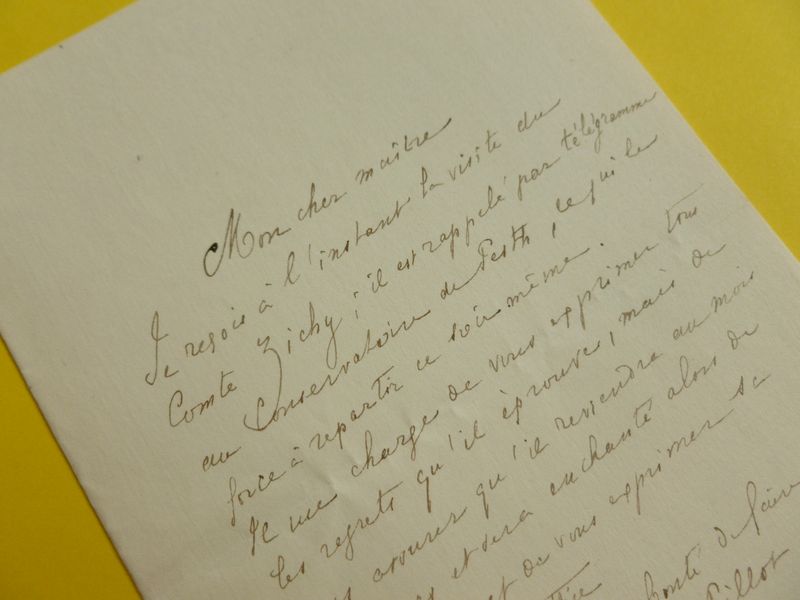 Mon cher maître
Je reçois à l'instant la visite du
Comte Zichy; il est rappelé par télégramme
au Conservatoire de Pesth, ce qui le
force à repartir ce soir même.
Il me charge de vous exprimer tous
les regrets qu'il éprouve, mais de
assurer qu'il reviendra au mois
et sera enchanté alors de
et de vous exprimer sa
Comte de